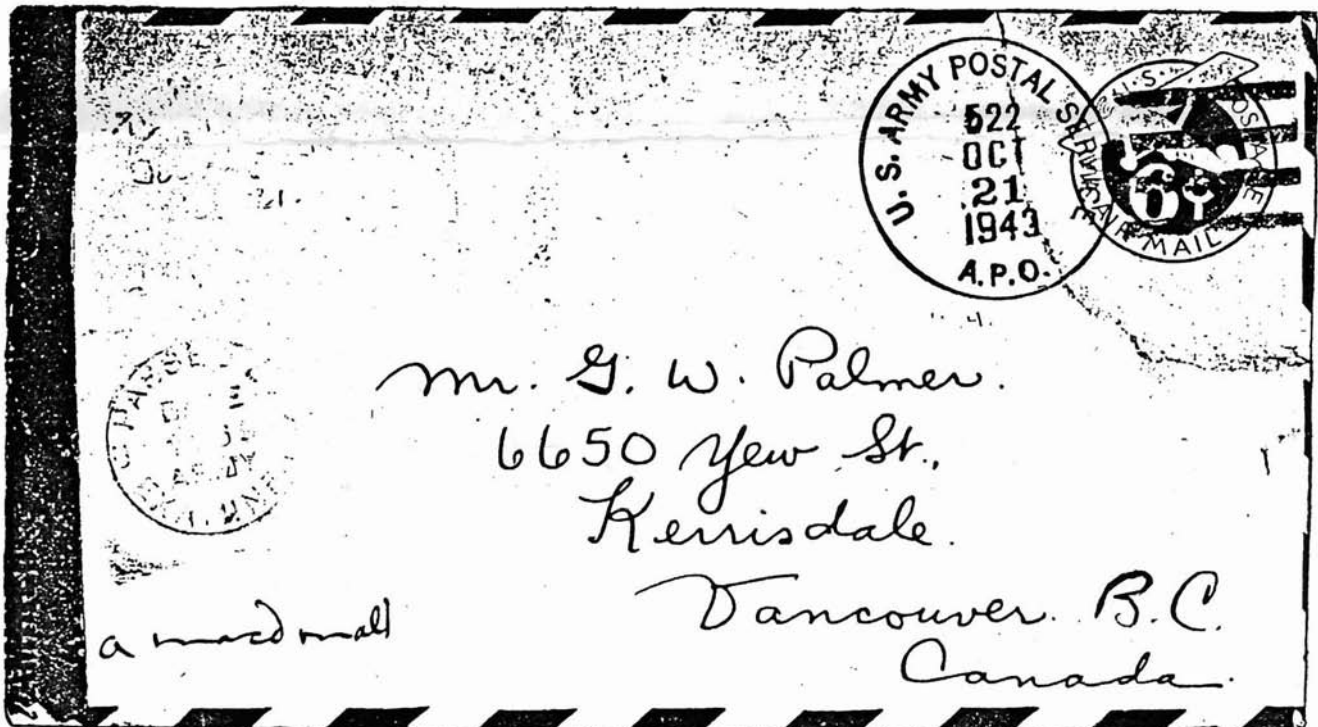 U.S. ARMY POSTAL SERVICE
522
OCT
21
1943
A.P.O.
U.S. POSTAGE
6¢
AIR MAIL
Mr. G. W. Palmer.
6650 Yew St.,
Kerrisdale.
Vancouver. B.C.
Canada.